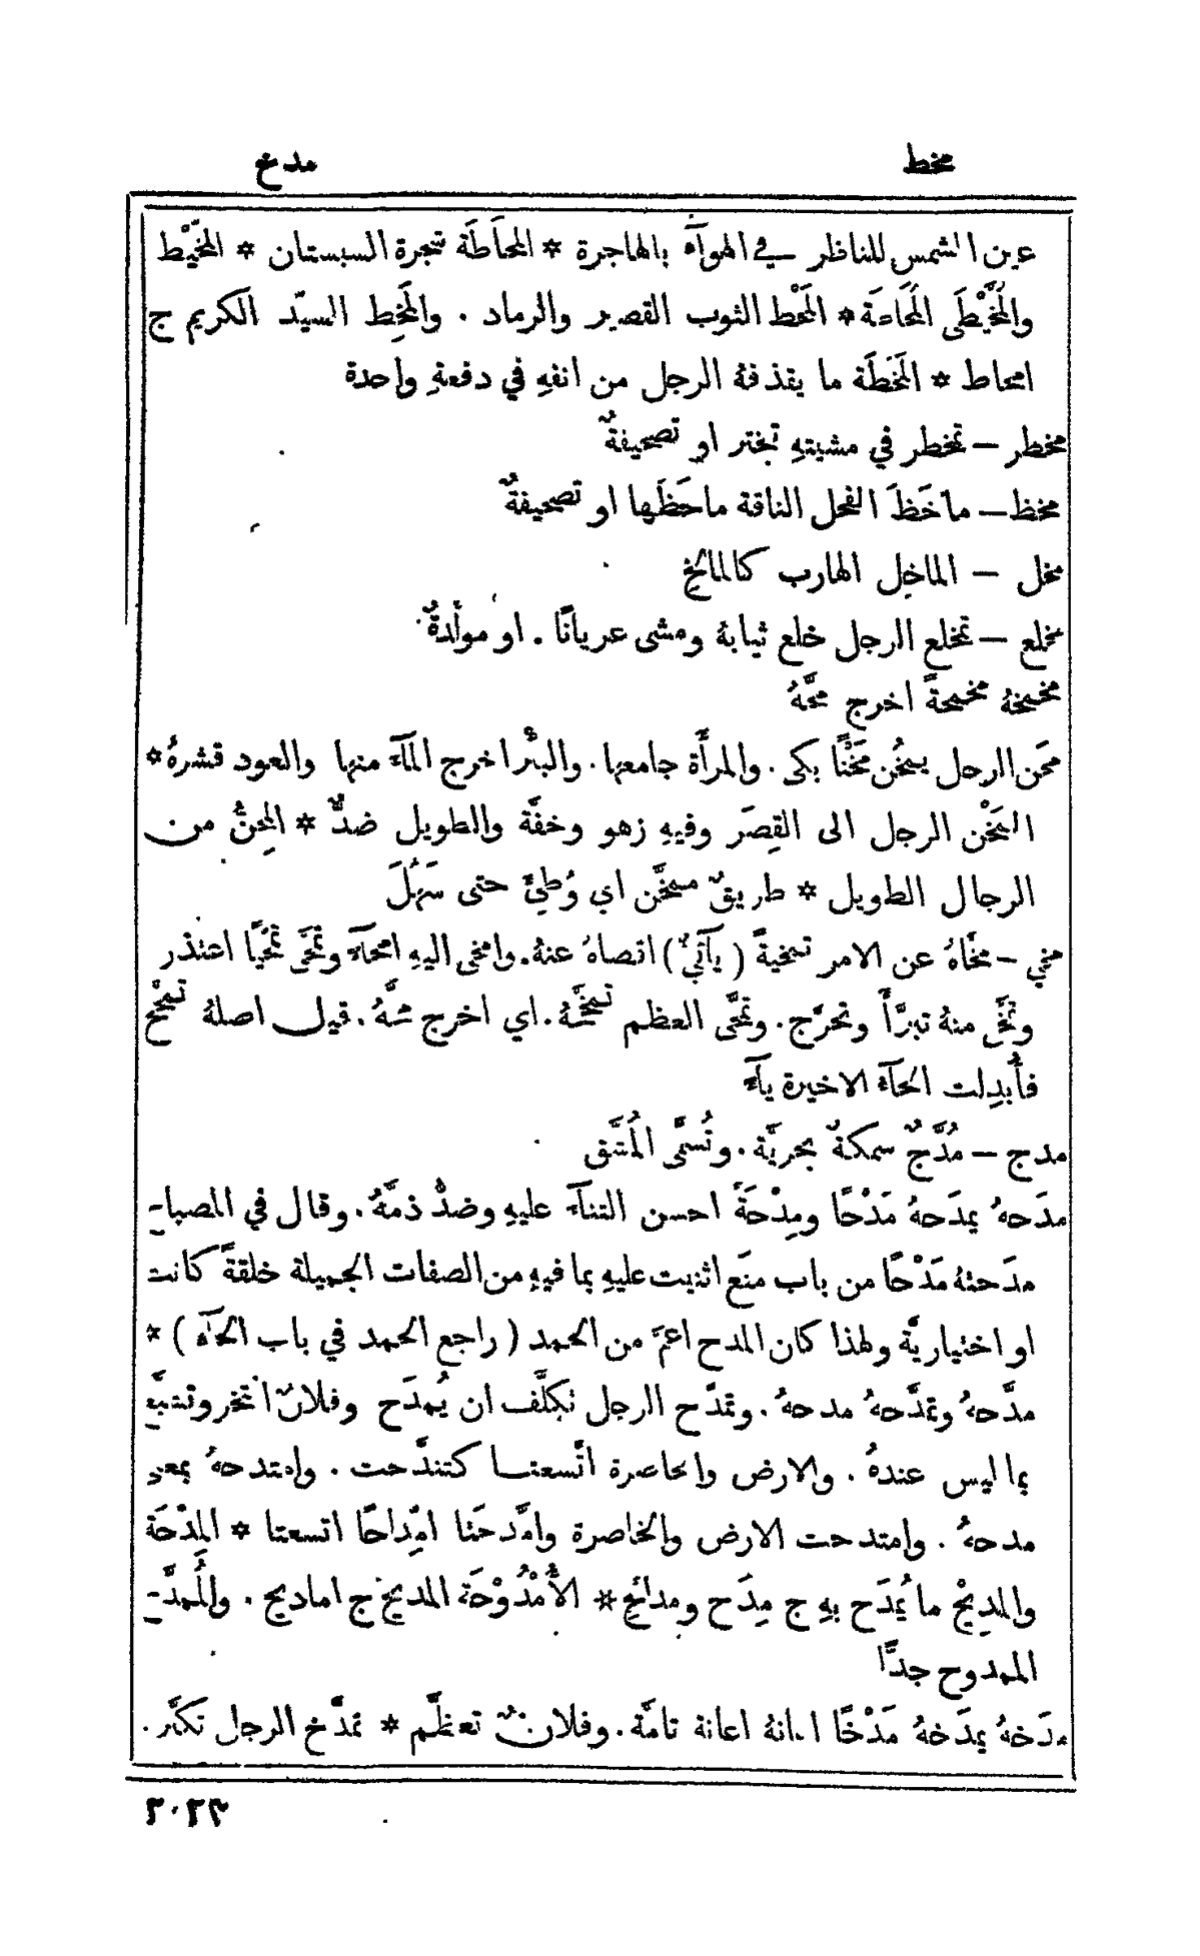 مخط
مدخ
عين الشمس للناظر في الهوآء بالهاجرة * المخَاطَة شجرة السبستان * المُخَّيْط
والمُخَّيْطَى المُخَاطة * المَخْط الثوب القصير والرماد . والمَخِط السيّد الكريم ج
امخاط * المَخْطَة ما يقذفهُ الرجل من انفهِ في دفعةٍ واحدة
مخطر — تمخطر في مشيتهِ تبختر او تصحيفةٌ
مخظ — ماخَظَ الفحل الناقة ماحَظَها او تصحيفةٌ
مخل — الماخِل الهارب كالمالخ
مخلع — تمخلع الرجل خلع ثيابهُ ومشى عريانًا . او مولَّدةٌ
مخمخهُ مخمخةً اخرج مخَّهُ
مخَن الرجل يمخُن مَخْنًا بكى . والمرأَة جامعها . والبئْر اخرج المآءَ منها والعود قشرهُ *
المَخْن الرجل الى القِصَر وفيهِ زهو وخفَّة والطويل ضدٌّ * المِخَنُّ من
الرجال الطويل * طريقٌ ممخَّن اي وُطِئَ حتى سَهُلَ
مخي — مخَّاهُ عن الامر تمخيةً ( يآئيٌّ ) اقصاهُ عنهُ . وامخى اليهِ امخآءً وتمخَّى تمخّيًا اعتذر
وتمخَّى منهُ تبرَّأَ وتحرَّج . وتمخَّى العظم تمخّخهُ . اي اخرج مخَّهُ . قيل اصلهُ تمخَّخ
فأُبدِلت الخآء الاخيرة يآءً
مدج — مُدَّجٌ سمكةٌ بحريَّة . وتُسمَّى المُشَّق
مدَحهُ يمدَحهُ مَدْحًا ومِدْحَةً احسن الثنآءَ عليهِ وضدُّ ذمَّهُ . وقال في المصباح
مدَحتهُ مَدْحًا من باب منَع اثنيت عليهِ بما فيهِ من الصفات الجميلة خلقةً كانت
او اختياريَّة ولهذا كان المدح اعمَّ من الحمد ( راجع الحمد في باب الحآء ) *
مدَّحهُ وتمدَّحهُ مدحهُ . وتمدَّح الرجل تكلَّف ان يُمدَح وفلانٌ افتخر وتشبَّع
بما ليس عندهُ . والارض والخاصرة اتَّسعتا كتندَّحت . وامتدحهُ بمعنى
مدحهُ . وامتدحت الارض والخاصرة وامَّدحَتا امِّداحًا اتسعتا * المِدْحَة
والمديْح ما يُمدَح بهِ ج مِدَح ومدائح * الأُمْدُوْحَة المديح ج اماديح . والمُمدَّح
الممدوح جدًّا
مدَخهُ يمدَخهُ مَدْخًا اعانهُ اعانة تامَّة . وفلانٌ تعظَّم * تمدَّخ الرجل تكبَّر .
٢٠٢٣